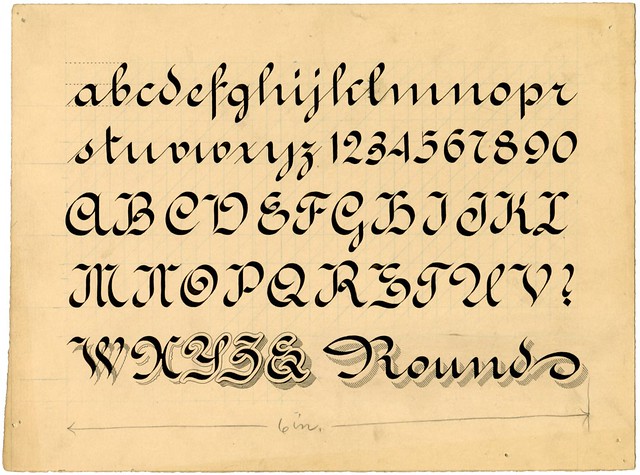 abcdefghijklmnopr
stuvwxyz 1234567890
ABCDEFGHIJKL
MNOPQRSTUV?
WXYZ& Round
6 in.